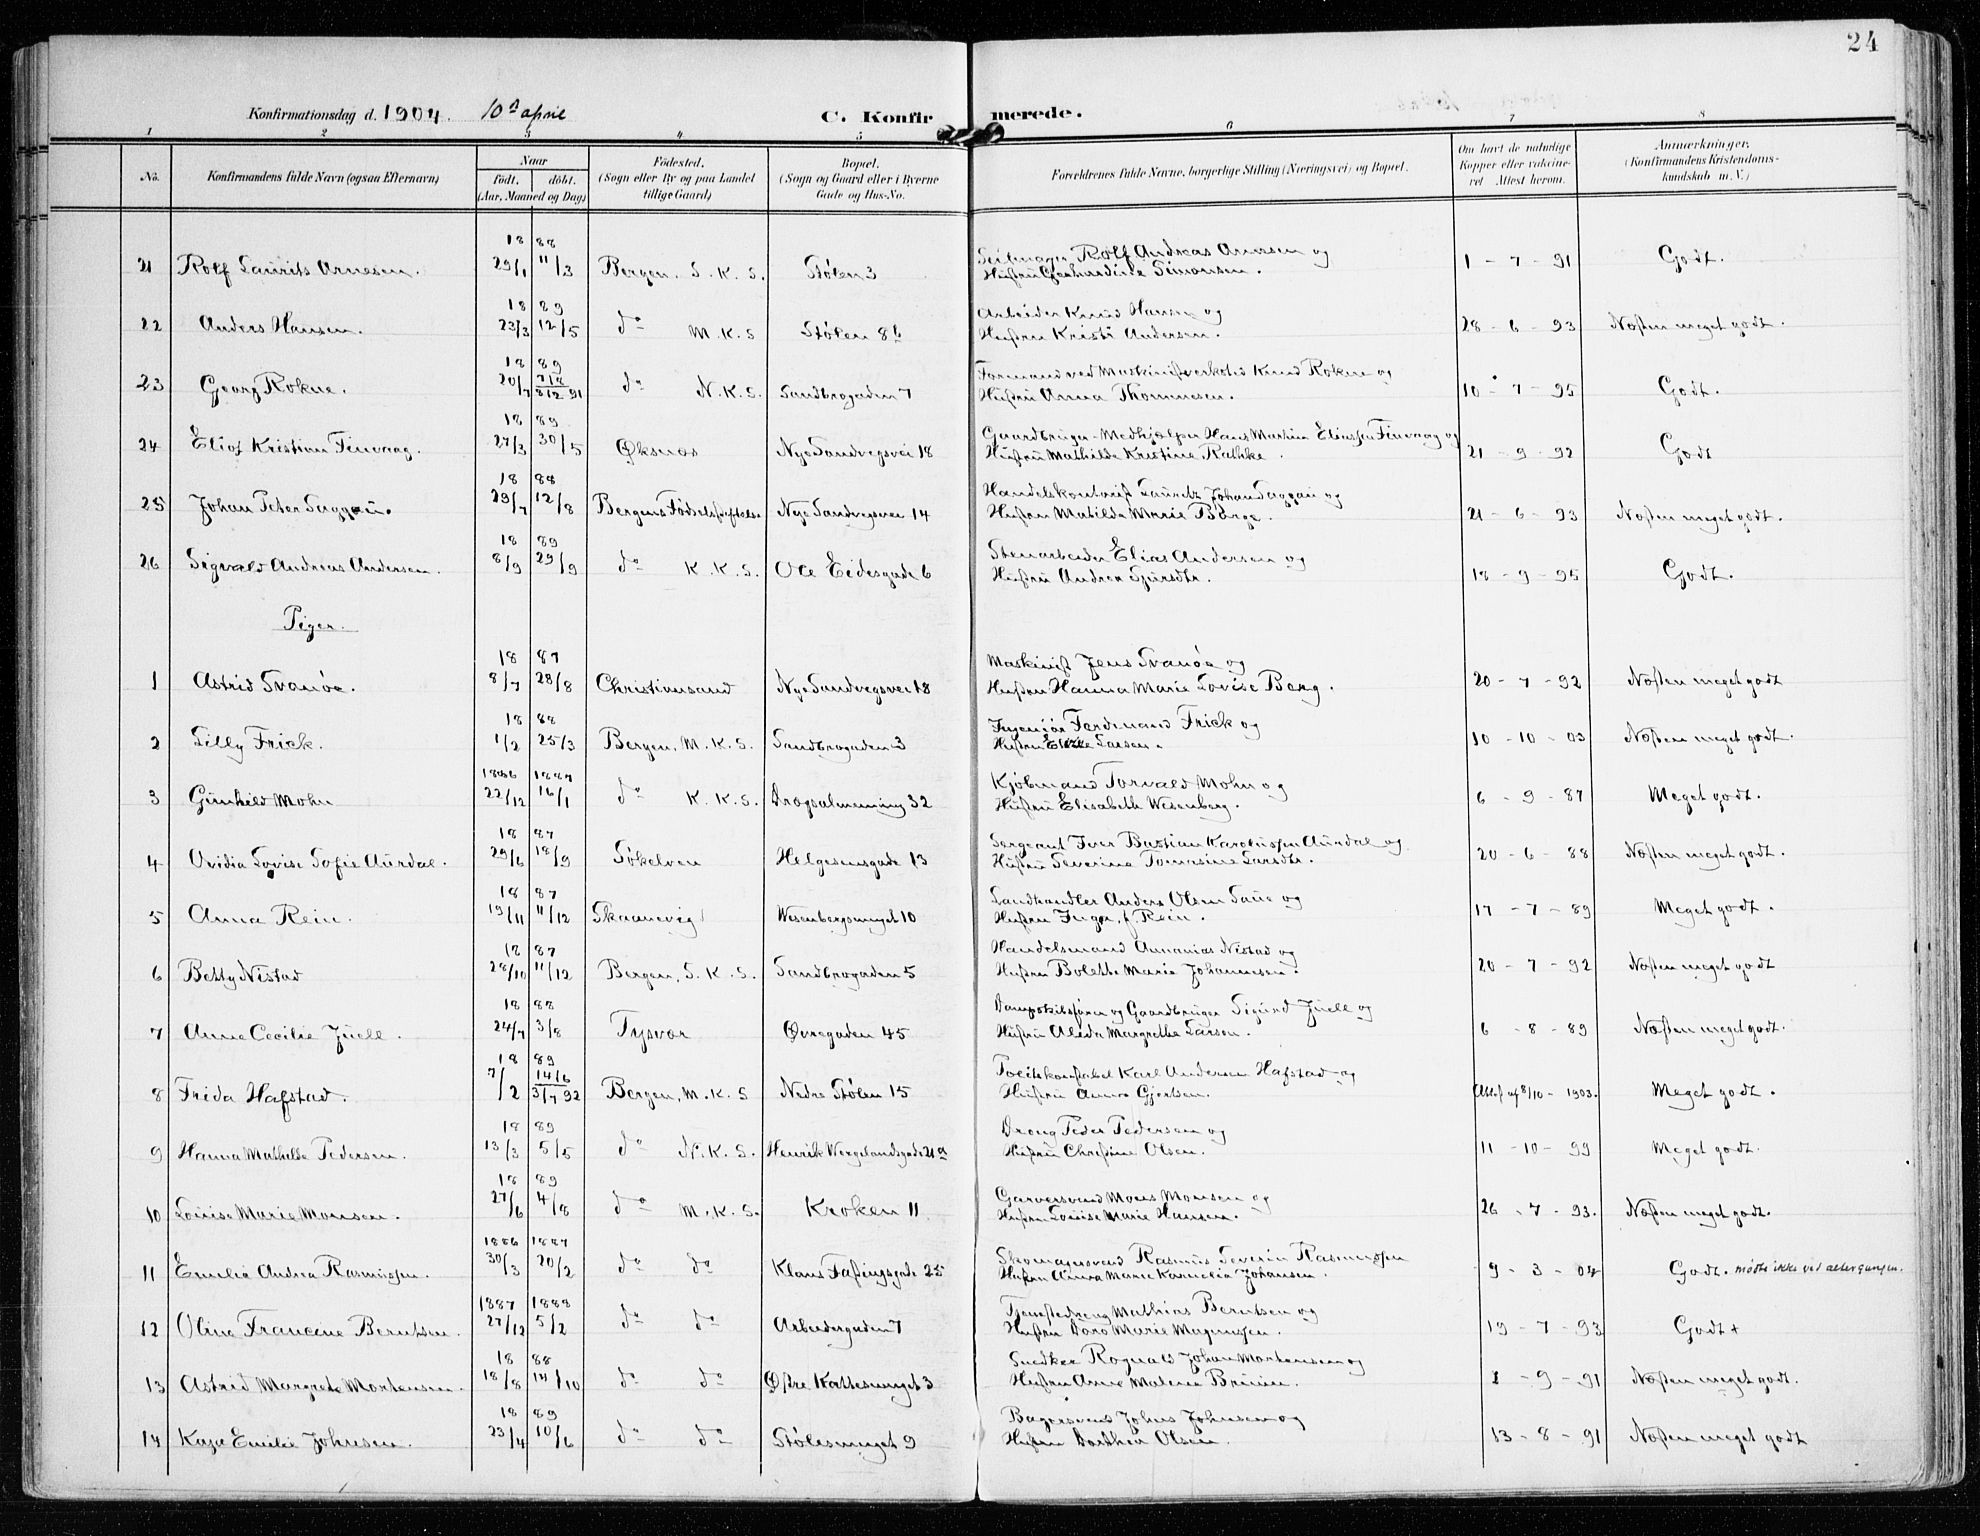 24
Konfirmationsdag d. 1904. 10de april C. Konfirmerede.
1 2 3 4 5 6 7 8
No. Konfirmandens fulde Navn (ogsaa Efternavn) Naar født. døbt. (Aar, Maaned og Dag) Fødested. (Sogn eller By og paa Landet tillige Gaard) Bopæl. (Sogn og Gaard eller i Byerne Gade og Hus-No. Forældrenes fulde Navne, borgerlige Stilling (Næringsvei) og Bopæl. Om havt de naturlige Kopper eller vaccineret Attest herom. Anmærkninger. (Konfirmandens Kristendomskundskab m. V.)
18 88
21 Rolf Laurits Arnesen. 29/1 11/3 Bergen. S. K. S. Stølen 3 Rolf Andreas Arnesen og 1 - 7 - 91 Godt.
Hustru Gerhardine Simonsen.
18 89
22 Anders Hansen. 23/3 12/5 do M. K. S Stølen 8b Arbeider Knud Hansen og 28 - 6 - 93 Næsten meget godt.
Hustru Kristi Andersen.
18 89
23 Georg Rokne. 20/7 8/12 91 do N. K. S. Sandbrogaden 7 Formand ved Maskinistverksted Knud Rokne og 10 - 7 - 95 Godt.
Hustru Anna Thommesen.
18 89
24 Eliot Kristian Finvaag. 27/3 30/5 Øksnæs Nye Sandvegsvei 18 Gaardbruger-Medhjælper Hans Martin Eliassen Finvaag og 21 - 9 - 92 Godt
Hustru Mathilde Kristine Rathke.
18 88
25 Johan Peter Saggau. 29/7 12/8 Bergens Fødselsstiftelse Nye Sandvegsvei 14 Handelskontorist Lauritz Johan Saggau og 21 - 6 - 93 Næsten meget godt.
Hustru Matilde Marie Børge.
18 89
26 Sigvald Andreas Andersen. 8/9 29/9 do K. K. S. Ole Eidesgade 6 Stenarbeider Elias Andersen og 18 - 9 - 95 Godt.
Hustru Andrea Sjursdtr.
Piger.
18 87
1 Astrid Svanøe. 8/7 28/8 Christiansand Nye Sandvegsvei 18 Maskinist Jens Svanøe og 20 - 7 - 92 Næsten meget godt
Hustru Hanna Marie Lovise Berg.
18 88
2 Lilly Frick. 1/2 25/3 Bergen, M. K. S. Sandbrogaden 3 Ingeniør Ferdinand Frick og 10 - 10 - 03 Næsten meget godt.
Hustru Larsen.
1886 1887
3 Gunhild Mohn 22/12 16/1 do K. K. S. Dragsalmening 32 Kjøbmand Torvald Mohn og 6 - 9 - 87 Meget godt.
Hustru Elisabeth Wesenberg.
18 87
4 Ovidia Lovise Sofie Aurdal. 29/6 18/9 Søkelven Helgesensgade 13 Sergeant Iver Bastian Karolussen Aurdal og 20 - 6 - 88 Næsten meget godt.
Hustru Severine Tomasine Larsdtr.
18 87
5 Anna Rein. 19/11 11/12 Skaanevig Wesenbergsmuget 10 Landhandler Anders Olsen Saue og 17 - 7 - 89 Meget godt.
Hustru Inga, f. Rein.
18 87
6 Betty Nistad 28/10 11/12 Bergen, S. K. S. Sandbrogaden 5 Handelsmand Annanias Nistad og 20 - 7 - 92 Næsten meget godt
Hustru Bolette Marie Johannesen.
18 88
7 Anne Cecilie Juell. 24/7 3/8 Tysvær Øvregaden 45 Dampskibsfører og Gaardbruger Sigurd Juell og 6 - 8 - 89 Næsten meget godt.
Hustru Alida Margrethe Larsen.
18 89
8 Frida Hafstad. 7/2 14/6 3/7 92 Bergen, M. K. S Nedre Stølen 15 Politikonstabel Karl Andersen Hafstad og Attest af 8/10 - 1903. Meget godt.
Hustru Anna Gjertsen.
18 89
9 Hanna Mathilde Pedersen. 13/3 5/5 do N. K. S. Henrik Wergelandsgade 21a Dreng Peder Pedersen og 11 - 10 - 99 Meget godt.
Hustru Christine Olsen.
18 89
10 Louise Marie Monsen. 27/6 4/8 do M. K. S. Kroken 11 Garversvend Mons Monsen og 26 - 7 - 93. Næsten meget godt.
Hustru Lovise Marie Hansen.
1886 1887
11 Emelie Andrea Rasmussen. 30/3 20/2 do do Klaus Fastingsgade 25 Skomagersvend Rasmus Severin Rasmussen 9 - 3 - 04 Godt. mødte ikke ved altergangen.
Hustru Anna Marie Kornelia Johansen.
1887 1888
12 Oline Francene Berntsen. 27/12 5/2 do do Arbeidergaden 7 Tjenestedreng Mathias Berntsen og 19 - 7 - 93 Godt +
Hustru Doro Marie Magnussen.
18 88
13 Astrid Margrete Mortensen. 18/8 14/10 do do Østre Kattesmuget 3 Snedker Rognald Johan Mortensen og 1 - 9 - 91 Næsten meget godt.
Hustru Ane Malene Bruun.
18 89
14 Kaja Emilie Johnsen. 23/4 10/6 do do Stølesmuget 9 Bagersvend Johns Johnsen og 13 - 8 - 91 Næsten meget godt
Hustru Dorthea Olsen.